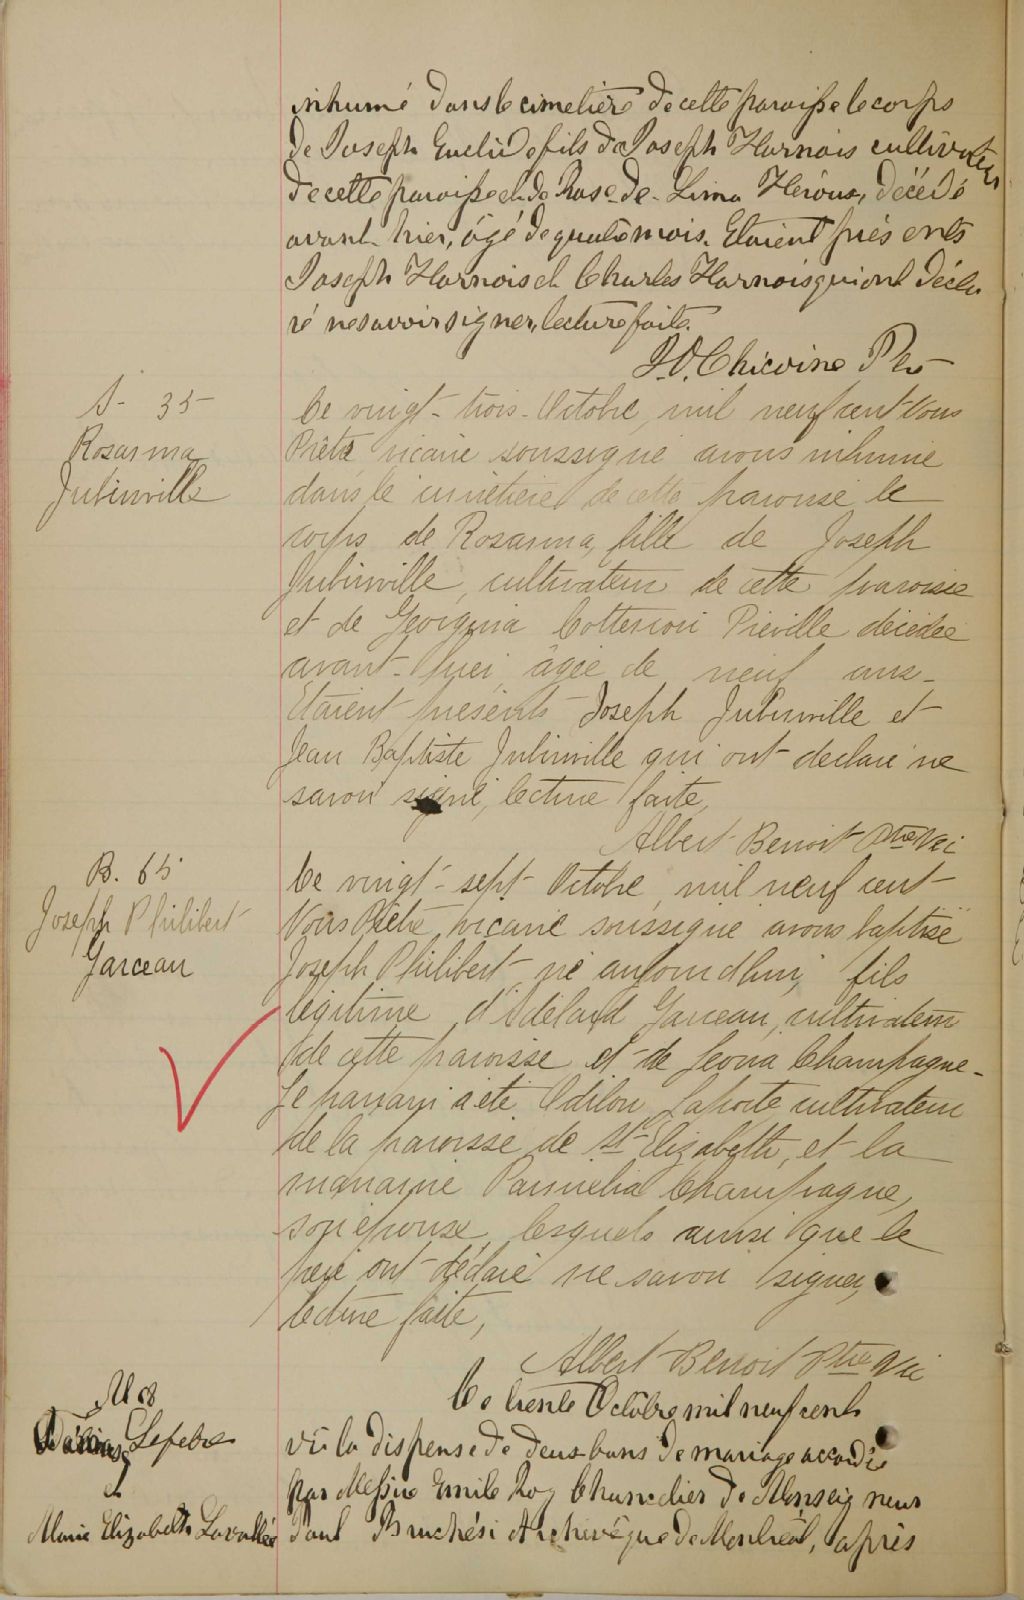 inhumé dans le cimetière de cette paroisse le corps
de Joseph Euclide fils de Joseph Harnois cultivateur
de cette paroisse et de Rose-de-Lima Héroux, décédé
avant-hier, âgé de quatre mois. Etaient présents
Joseph Harnois et Charles Harnois qui ont décla
ré ne savoir signer, lecture faite.
J.O. Chicoine Ptre
S- 35
Rosanna
Jubinville
Ce vingt-trois-Octobre, mil neuf cent Nous
Prêtre vicaire soussigné avons inhumé
dans le cimetière de cette paroisse le
corps de Rosanna, fille de Joseph
Jubinville, cultivateur de cette paroisse
et de Georgina Cotteriou Préville décédée
avant-hier âgée de neuf ans-
Etaient présents Joseph Jubinville et
Jean Baptiste Jubinville qui ont déclaré ne
savoir signé, lecture faite,
Albert Benoit Ptre Vic
B. 65
Joseph Philibert
Garceau
Ce vingt-sept Octobre, mil neuf cent
Nous Prêtre, vicaire soussigné avons baptisé
Joseph Philibert né aujourd'hui, fils
légitime d'Adélard Garceau, cultivateur
de cette paroisse et de Leona Champagne-
Le parrain a été Odilon Laporte cultivateur
de la paroisse de St-Elizabeth, et la
marraine Parmelia Champagne,
son épouse, lesquels ainsi que le
père ont déclaré ne savoir signer,
lecture faite,
Albert Benoit Ptre Vic
M 8
Lefebvre
&
Marie Elizabeth Lavallée
Ce trente Octobre mil neuf cent
vû la dispense de deux bans de mariage accordée
par Messire Emile Roy Chancelier de Monseigneur
Paul Bruchési Archevêque de Montréal, après